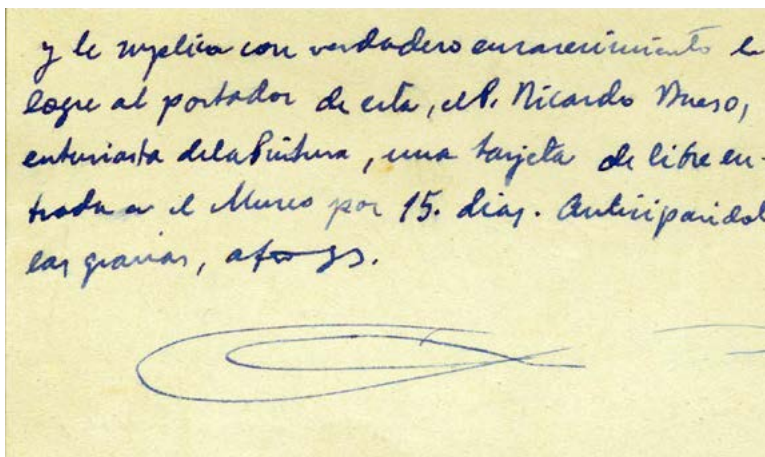 y le suplica con verdadero encarecimiento le
logre al portador de esta, el P. Ricardo Mueso,
entusiasta de la Pintura, una tarjeta de libre en-
trada en el Museo por 15. dias. Anticipandol
las gracias, afmo ss.